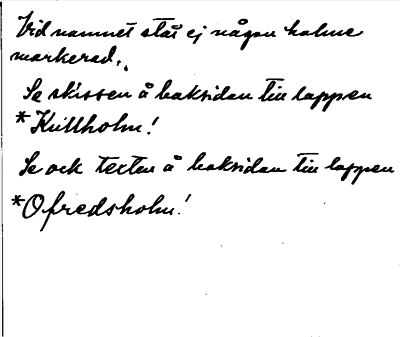 Vid namnet står ej någon holme
markerad.
Se skissen å baksidan till lappen
*Kullholm!
Se ock texten å baksidan till lappen
*Ofredsholm!